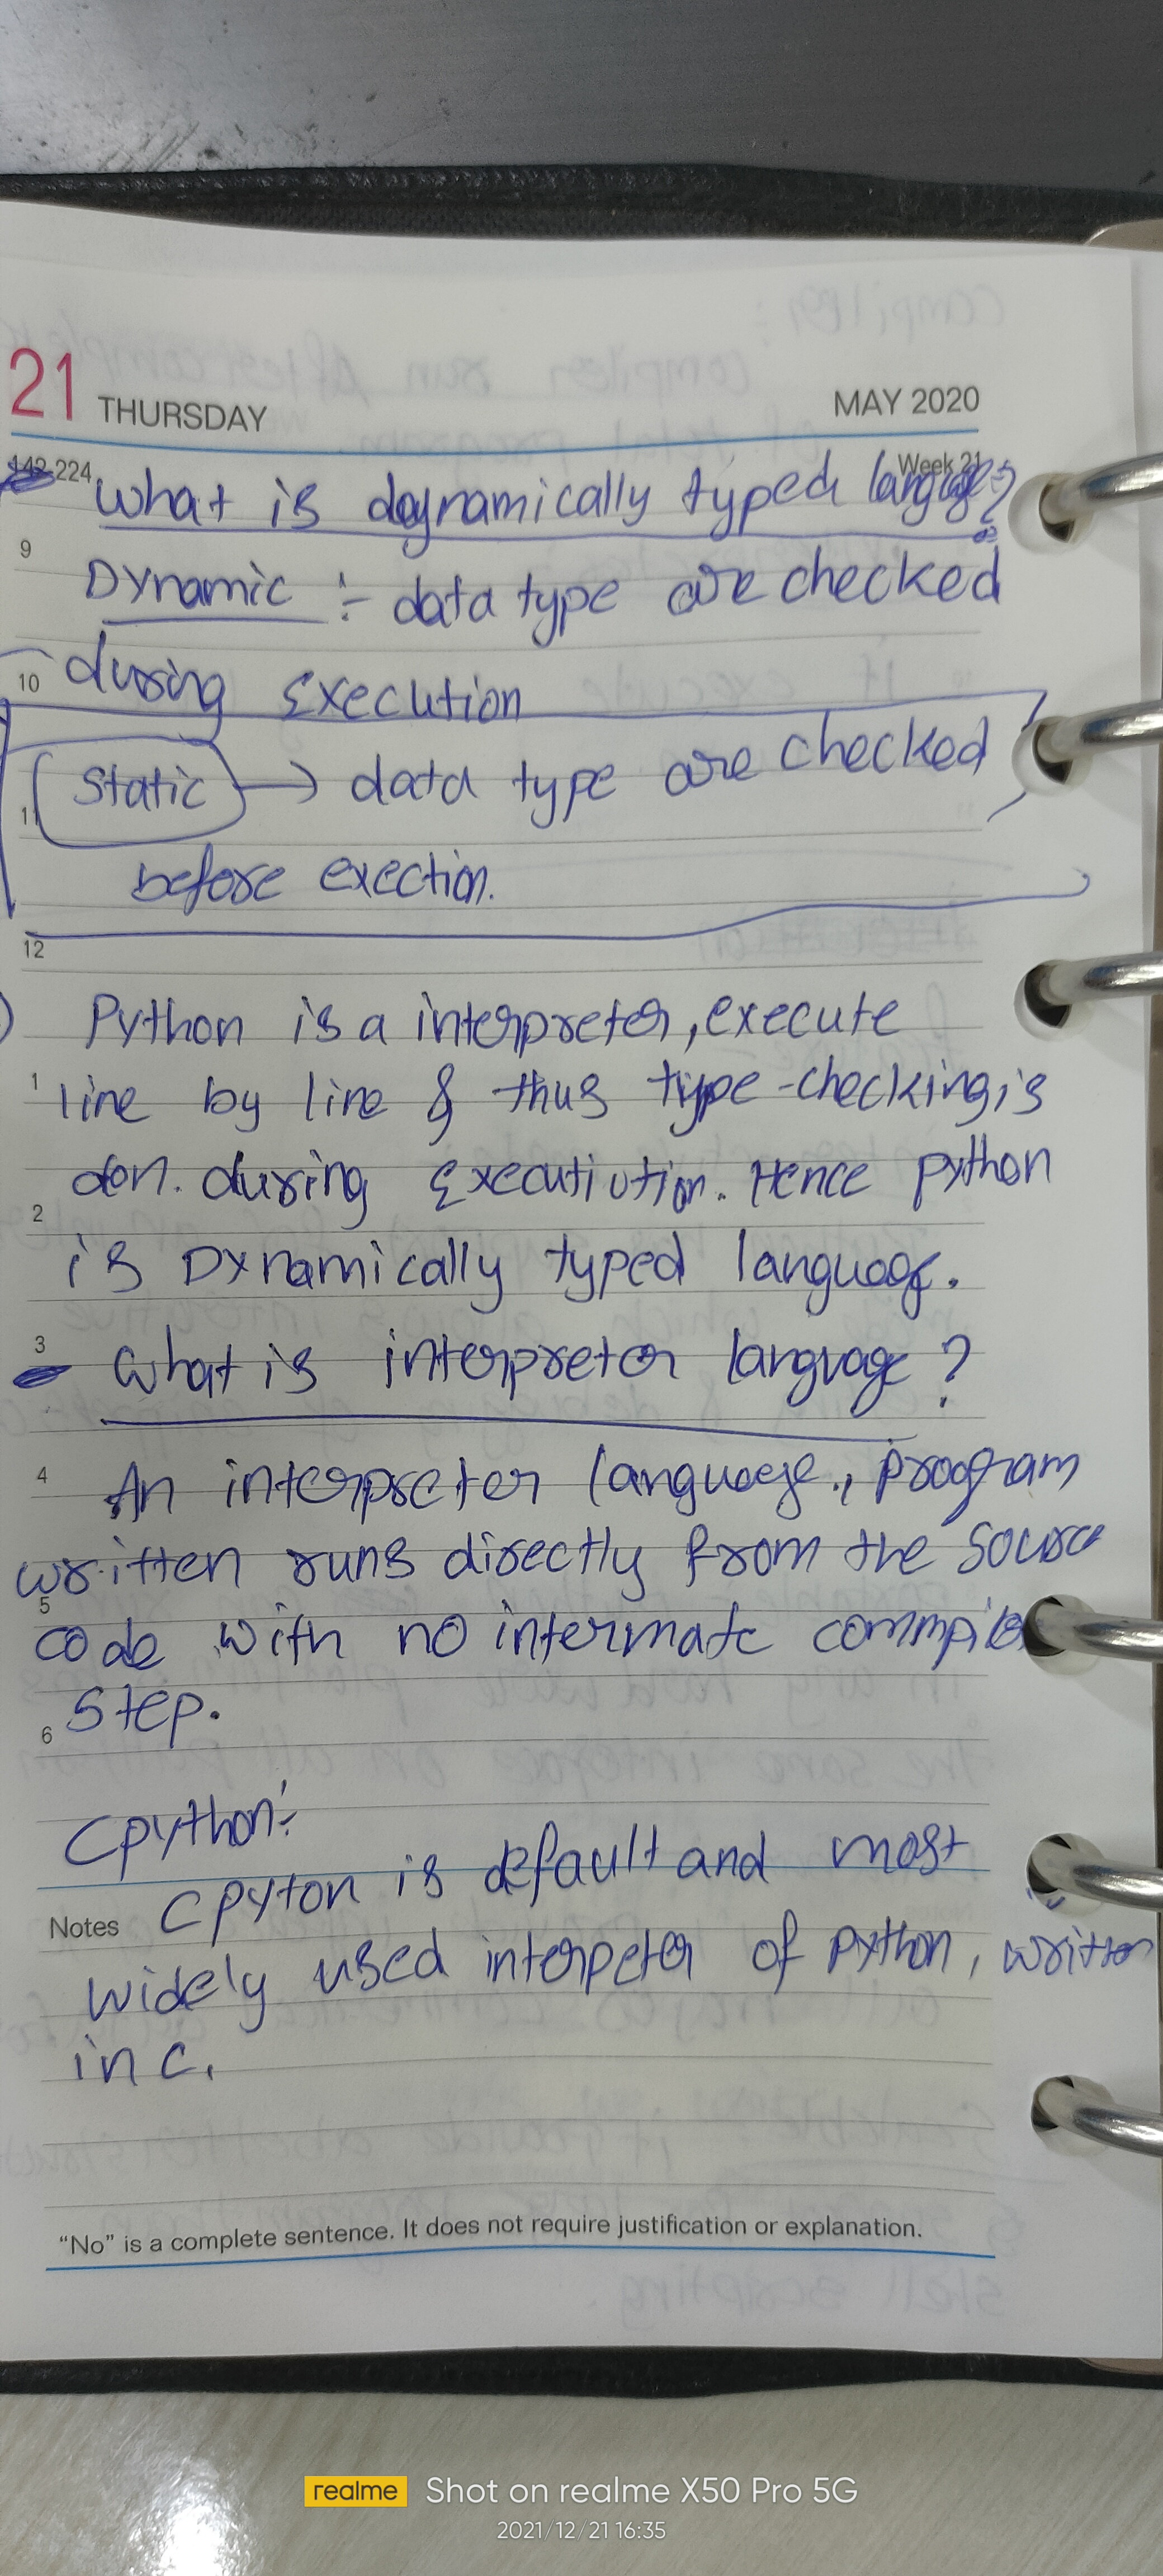 21 THURSDAY MAY 2020
142-224 Week 21
What is dynamically typed language?
9
Dynamic :- data type are checked
10 during Execution
Static → data type are checked
11
before exection.
12
Python is a interpreter, execute
1 line by line & thus type-checking is
don. during Executiution. Hence python
2
is Dynamically typed language.
3 What is interpreter language ?
4 An interpreter language, program
written runs directly from the source
5
code with no intermate commpiler
step.
6
Cpython:-
Cpyton is default and most
Notes
widely used interpeter of python, written
in c.
“No” is a complete sentence. It does not require justification or explanation.
realme Shot on realme X50 Pro 5G
2021/12/21 16:35